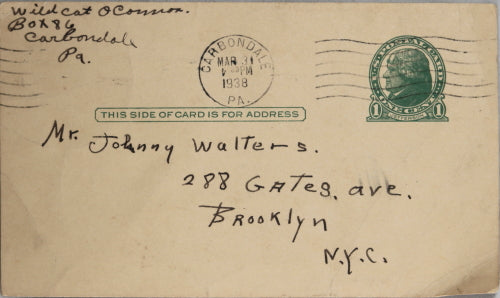 Wildcat OConnor.
Box 86
Carbondale
Pa.
CARBONDALE
MAR 31
PM
1938
PA.
U.S. POSTAL CARD
1 ONE CENT 1
JEFFERSON
THIS SIDE OF CARD IS FOR ADDRESS
Mr. Johnny Walters.
288 Gates. ave.
Brooklyn
N.Y.C.